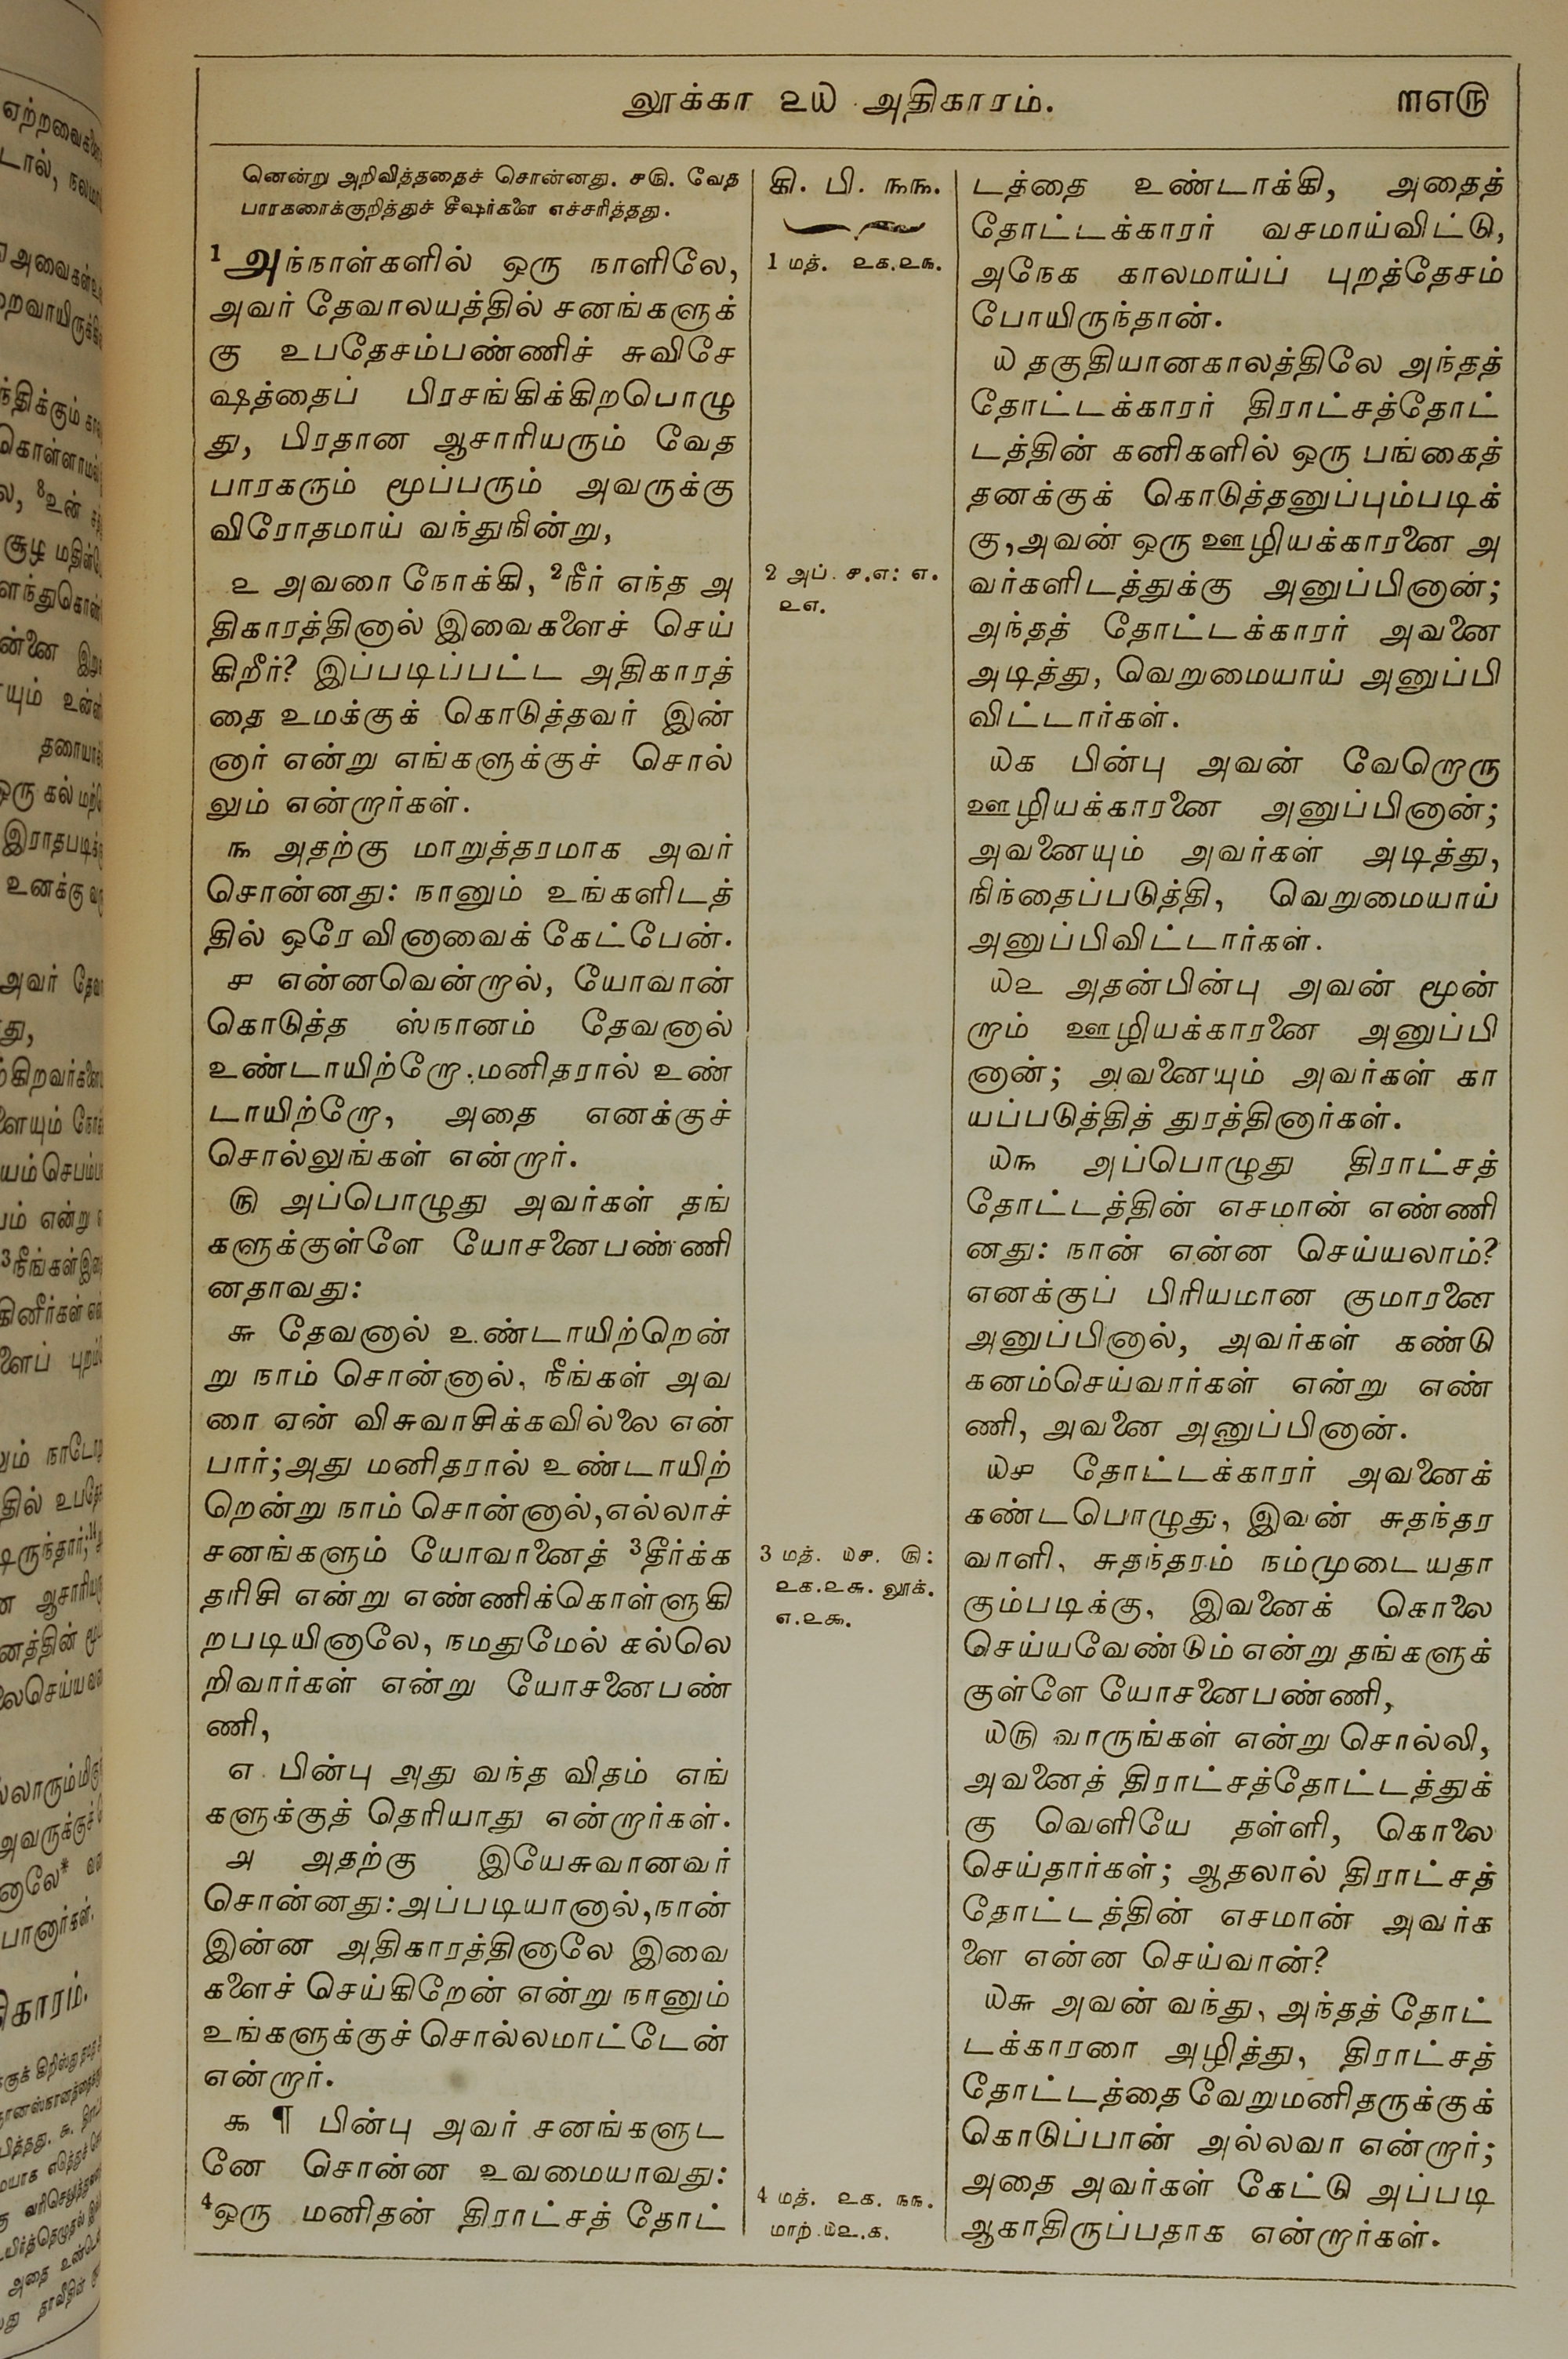 லூக்கா ௨௰ அதிகாரம். ௩௭௫
னென்று அறிவித்ததைச் சொன்னது. ௪௫. வேத
பாரகரைக்குறித்துச் சீஷர்களை எச்சரித்தது.
1 அந்நாள்களில் ஒரு நாளிலே,
அவர் தேவாலயத்தில் சனங்களுக்
கு உபதேசம்பண்ணிச் சுவிசே
ஷத்தைப் பிரசங்கிக்கிறபொழு
து, பிரதான ஆசாரியரும் வேத
பாரகரும் மூப்பரும் அவருக்கு
விரோதமாய் வந்துநின்று,
௨ அவரை நோக்கி, 2நீர் எந்த அ
திகாரத்தினால் இவைகளைச் செய்
கிறீர்? இப்படிப்பட்ட அதிகாரத்
தை உமக்குக் கொடுத்தவர் இன்
னார் என்று எங்களுக்குச் சொல்
லும் என்றார்கள்.
௩ அதற்கு மாறுத்தரமாக அவர்
சொன்னது: நானும் உங்களிடத்
தில் ஒரே வினாவைக் கேட்பேன்.
௪ என்னவென்றால், யோவான்
கொடுத்த ஸ்நானம் தேவனால்
உண்டாயிற்றோ மனிதரால் உண்
டாயிற்றோ, அதை எனக்குச்
சொல்லுங்கள் என்றார்.
௫ அப்பொழுது அவர்கள் தங்
களுக்குள்ளே யோசனைபண்ணி
னதாவது:
௬ தேவனால் உண்டாயிற்றென்
று நாம் சொன்னால், நீங்கள் அவ
ரை ஏன் விசுவாசிக்கவில்லை என்
பார்; அது மனிதரால் உண்டாயிற்
றென்று நாம் சொன்னால், எல்லாச்
சனங்களும் யோவானைத் 3தீர்க்க
தரிசி என்று எண்ணிக்கொள்ளுகி
றபடியினாலே, நமதுமேல் கல்லெ
றிவார்கள் என்று யோசனைபண்
ணி,
௭ பின்பு அது வந்த விதம் எங்
களுக்குத் தெரியாது என்றார்கள்.
௮ அதற்கு இயேசுவானவர்
சொன்னது: அப்படியானால், நான்
இன்ன அதிகாரத்தினாலே இவை
களைச் செய்கிறேன் என்று நானும்
உங்களுக்குச் சொல்லமாட்டேன்
என்றார்.
௯ ¶ பின்பு அவர் சனங்களுட
னே சொன்ன உவமையாவது:
4ஒரு மனிதன் திராட்சத் தோட்
கி. பி. ௩௩.
1 மத். ௨௧.௨௩.
2 அப். ௪.௭: ௭.
௨௭.
3 மத். ௰௪. ௫:
௨௧.௨௬. லூக்.
௭.௨௯.
4 மத். ௨௧. ௩௩.
மாற். ௰௨.௧.
டத்தை உண்டாக்கி, அதைத்
தோட்டக்காரர் வசமாய்விட்டு,
அநேக காலமாய்ப் புறத்தேசம்
போயிருந்தான்.
௰ தகுதியானகாலத்திலே அந்தத்
தோட்டக்காரர் திராட்சத்தோட்
டத்தின் கனிகளில் ஒரு பங்கைத்
தனக்குக் கொடுத்தனுப்பும்படிக்
கு, அவன் ஒரு ஊழியக்காரனை அ
வர்களிடத்துக்கு அனுப்பினான்;
அந்தத் தோட்டக்காரர் அவனை
அடித்து, வெறுமையாய் அனுப்பி
விட்டார்கள்.
௰௧ பின்பு அவன் வேறொரு
ஊழியக்காரனை அனுப்பினான்;
அவனையும் அவர்கள் அடித்து,
நிந்தைப்படுத்தி, வெறுமையாய்
அனுப்பிவிட்டார்கள்.
௰௨ அதன்பின்பு அவன் மூன்
றாம் ஊழியக்காரனை அனுப்பி
னான்; அவனையும் அவர்கள் கா
யப்படுத்தித் துரத்தினார்கள்.
௰௩ அப்பொழுது திராட்சத்
தோட்டத்தின் எசமான் எண்ணி
னது: நான் என்ன செய்யலாம்?
எனக்குப் பிரியமான குமாரனை
அனுப்பினால், அவர்கள் கண்டு
கனம்செய்வார்கள் என்று எண்
ணி, அவனை அனுப்பினான்.
௰௪ தோட்டக்காரர் அவனைக்
கண்டபொழுது, இவன் சுதந்தர
வாளி, சுதந்தரம் நம்முடையதா
கும்படிக்கு, இவனைக் கொலை
செய்யவேண்டும் என்று தங்களுக்
குள்ளே யோசனைபண்ணி,
௰௫ வாருங்கள் என்று சொல்லி,
அவனைத் திராட்சத்தோட்டத்துக்
கு வெளியே தள்ளி, கொலை
செய்தார்கள்; ஆதலால் திராட்சத்
தோட்டத்தின் எசமான் அவர்க
ளை என்ன செய்வான்?
௰௬ அவன் வந்து, அந்தத் தோட்
டக்காரரை அழித்து, திராட்சத்
தோட்டத்தை வேறுமனிதருக்குக்
கொடுப்பான் அல்லவா என்றார்;
அதை அவர்கள் கேட்டு அப்படி
ஆகாதிருப்பதாக என்றார்கள்.